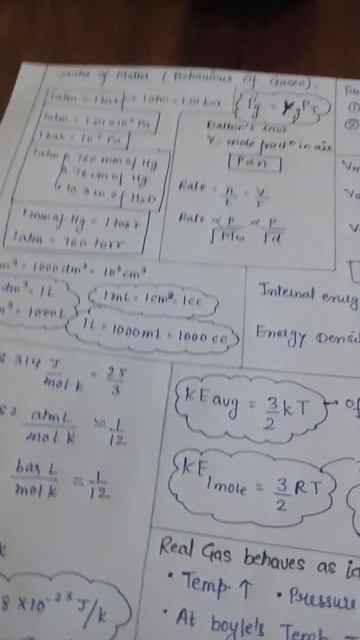 States of Matter (Behaviour Of Gases).
1atm = 1bar → 1atm = 1.01 bar.
1atm = 1.01 × 10⁵ Pa
1 bar = 10⁵ Pa
1atm = 760 mm of Hg
76 cm of Hg
10.3 m of H₂O
1mm of Hg = 1torr
1atm = 760 torr
Pg = χg PT
Dalton's law
mole in air
P ∝ n
Rate = n/t = V/t
Rate ∝ P/√Mw ∝ P/√d
m³ = 1000 dm³ = 10⁶ cm³
dm³ = 1L
m³ = 1000L
1mL = 1cm³, 1cc
1L = 1000mL = 1000 cc
Internal energ
Energy Densi
8.314 J/mol k = 25/3
atm L/mol k ≈ 1/12
bar L/mol k = 1/12
KE avg = 3/2 kT
KE 1mole = 3/2 RT
8 × 10⁻²³ J/k
Real Gas behaves as
• Temp. ↑ • Pressure
• At boyle's Temp